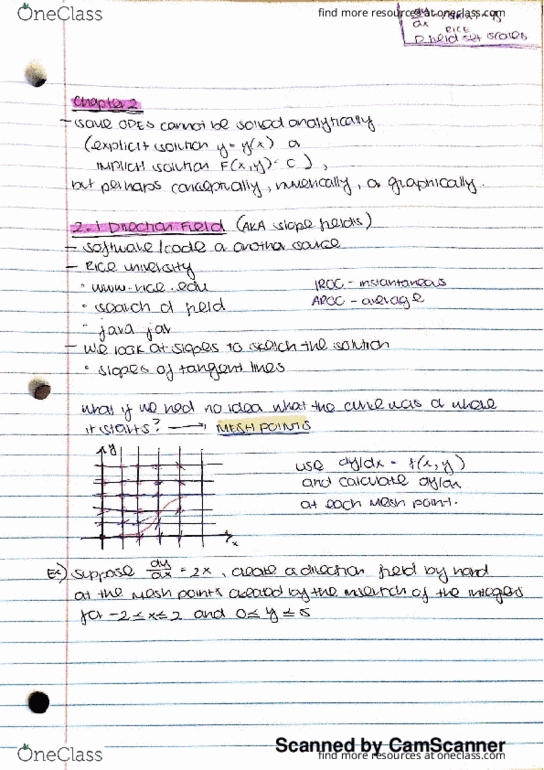 OneClass
find more resources at oneclass.com
dy
dx
RICE
Chapter 2
- some ODEs cannot be solved analytically
(explicit solution y = y(x) or
implicit solution F(x,y) = C ),
but perhaps conceptually, numerically, or graphically.
2.1 Direction Field (AKA slope fields)
- software / code or another source
- Rice university
• www.rice.edu
IROC - instantaneous
• search d field
AROC - average
• java jar
- we look at slopes to sketch the solution
• slopes of tangent lines
what if we had no idea what the curve was or where
it starts? → MESH POINTS
y
x
use dy/dx = f(x,y)
and calculate dy/dx
at each mesh point.
Ex) suppose dy/dx = 2x, create a direction field by hand
at the mesh points created by the of the integers
for -2 ≤ x ≤ 2 and 0 ≤ y ≤ 5
OneClass
Scanned by CamScanner
find more resources at oneclass.com